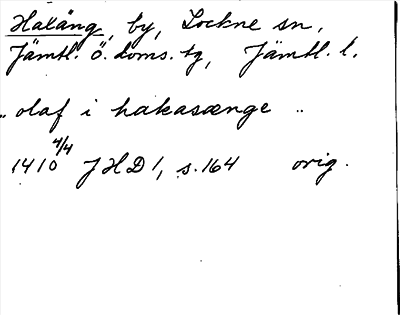 Haläng, by, Lockne sn,
Jämtl. ö. doms. tg, Jämtl. l.
"olaf i hakasænge"
1410 4/4 JHD 1, s. 164 orig.